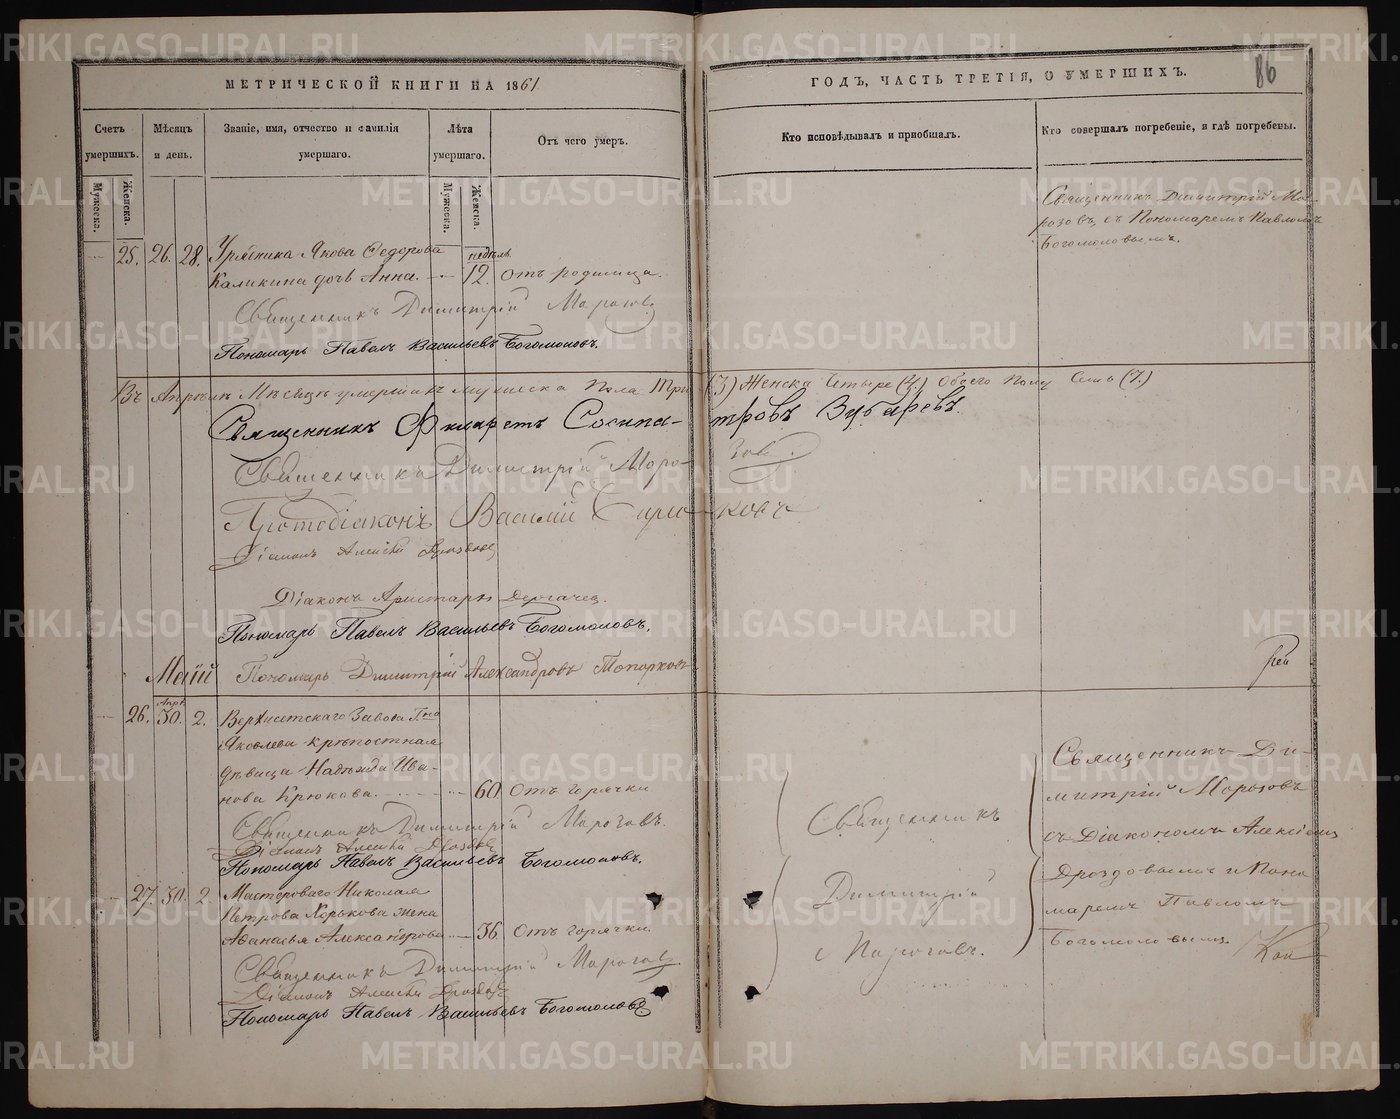 МЕТРИЧЕСКОЙ КНИГИ НА 1861
Счетъ умершихъ.
Мужеска.
Женска.
Мѣсяцъ и день.
Званіе, имя, отчество и фамилія умершаго.
Лѣта умершаго.
Мужеска.
Женска.
Отъ чего умеръ.
25. 26. 28. Урядника Якова Федорова недѣль
Каликина дочь Анна. 12. Отъ родимца.
Священникъ Димитрій Морозовъ
Пономарь Павелъ Васильевъ Богомоловъ.
Въ Апрѣлѣ Мѣсяцѣ умершихъ мужеска Пола Три (3) Женска Четыре (4.) Обоего Полу Семь (7.)
Священникъ Филаретъ Сосипатровъ Зубаревъ.
Священникъ Димитрій Морозовъ.
Протодіаконъ Василій
Діаконъ Алексѣй Дроздовъ
Діаконъ Аристархъ Дергачев
Пономарь Павелъ Васильевъ Богомоловъ.
Маій Пономарь Димитрій Александровъ Топорковъ
26. Апрѣ. 30. 2. Верхисетскаго Завода Гна
Яковлева крѣпостная
дѣвица Надежда Ива-
нова Крюкова. 60. Отъ горячки
Священникъ Димитрій Морозовъ.
Діаконъ Алексѣй Дроздовъ
Пономарь Павелъ Васильевъ Богомоловъ.
27. 30. 2. Мастероваго Николая
Петрова Хорькова жена
Афанасья Александрова 36. Отъ горячки.
Священникъ Димитрій Морозовъ.
Діаконъ Алексѣй Дроздовъ
Пономарь Павелъ Васильевъ Богомоловъ
ГОДЪ, ЧАСТЬ ТРЕТІЯ, О УМЕРШИХЪ.
86
Кто исповѣдывалъ и пріобщалъ.
Кто совершалъ погребеніе, и гдѣ погребены.
Священникъ Димитрій Мо-
розовъ, съ Пономаремъ Павломъ
Богомоловымъ.
Священникъ
Димитрій
Морозовъ.
Священникъ Ди-
митрій Морозовъ
съ Діакономъ Алексіемъ
Дроздовымъ и Поно
маремъ Павломъ
Богомоловымъ.
METRIKI.GASO-URAL.RU